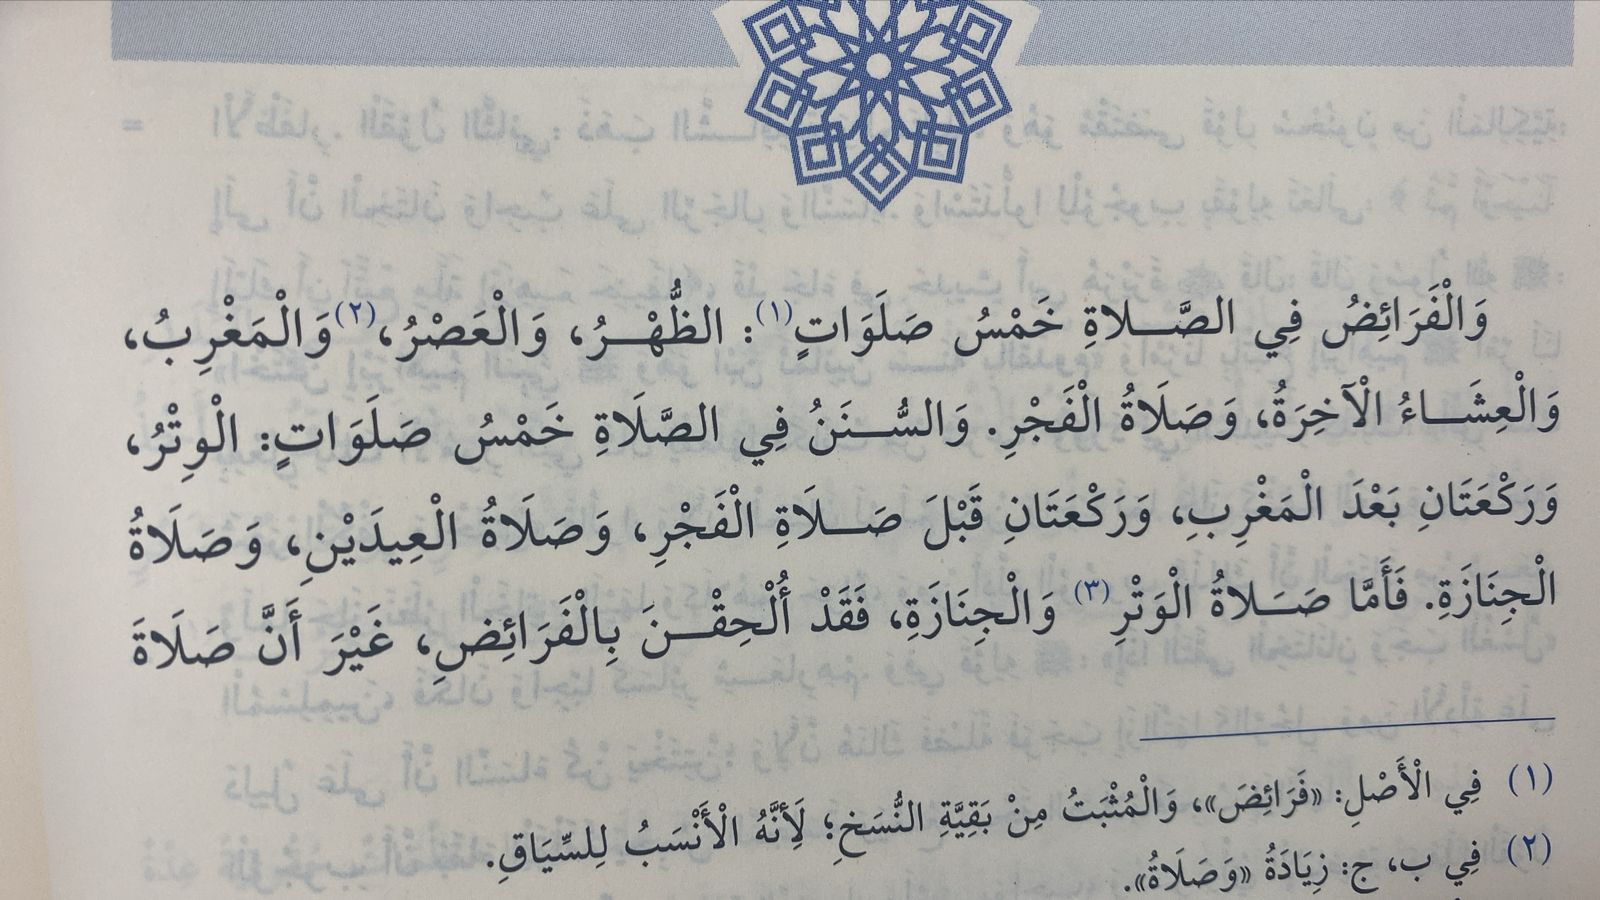 وَالْفَرَائِضُ فِي الصَّـــلاةِ خَمْسُ صَلَوَاتٍ(١): الظُّهْـــرُ، وَالْعَصْرُ،(٢) وَالْمَغْرِبُ،
وَالْعِشَـــاءُ الْآخِرَةُ، وَصَلَاةُ الْفَجْرِ. وَالسُّـــنَنُ فِي الصَّلَاةِ خَمْسُ صَلَوَاتٍ: الْوِتْرُ،
وَرَكْعَتَانِ بَعْدَ الْمَغْرِبِ، وَرَكْعَتَانِ قَبْلَ صَـــلَاةِ الْفَجْرِ، وَصَلَاةُ الْعِيدَيْنِ، وَصَلَاةُ
الْجِنَازَةِ. فَأَمَّا صَـــلاةُ الْوَتْرِ(٣) وَالْجِنَازَةِ، فَقَدْ أُلْحِقْـــنَ بِالْفَرَائِضِ، غَيْرَ أَنَّ صَلَاةَ
(١) فِي الْأَصْلِ: «فَرَائِضَ»، وَالْمُثْبَتُ مِنْ بَقِيَّةِ النُّسَخِ؛ لَأنَّهُ الْأَنْسَبُ لِلسِّيَاقِ.
(٢) فِي ب، ج: زِيَادَةُ «وَصَلَاةُ».